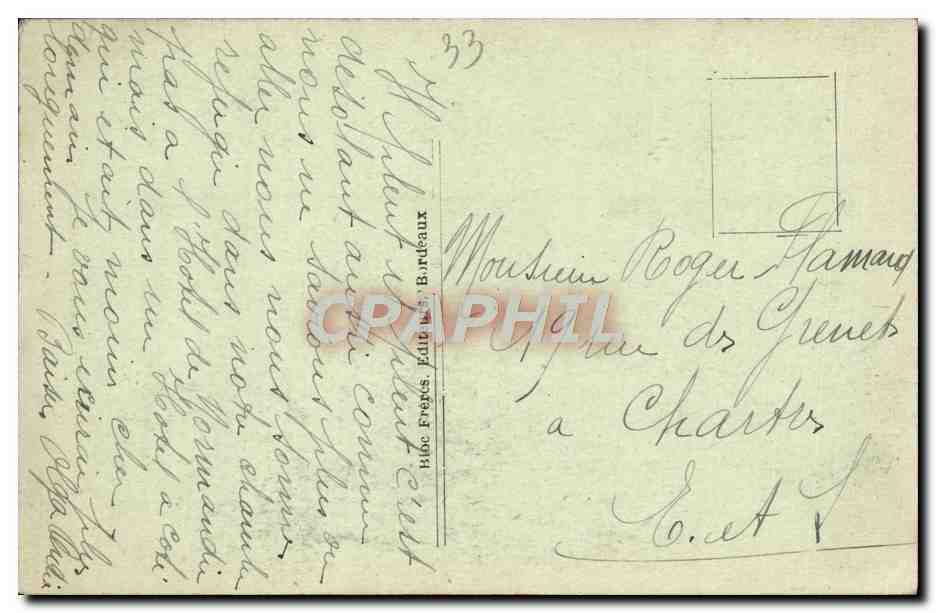 33
Il pleut il pleut c'est
desolant aussi comme
nous ne savons plus ou
aller nous nous sommes
refugie dans notre chambre
pas a l'Hotel de Normandie
mais dans un Hotel a coté
qui etait moins cher
demain je vous ecrirai plus
longuement - Baisers Olga
Bloc Frères, Editeurs, Bordeaux
CRAPHIL
Monsieur Roger Hamard
19 rue des Grenets
a Chartres
E. et L